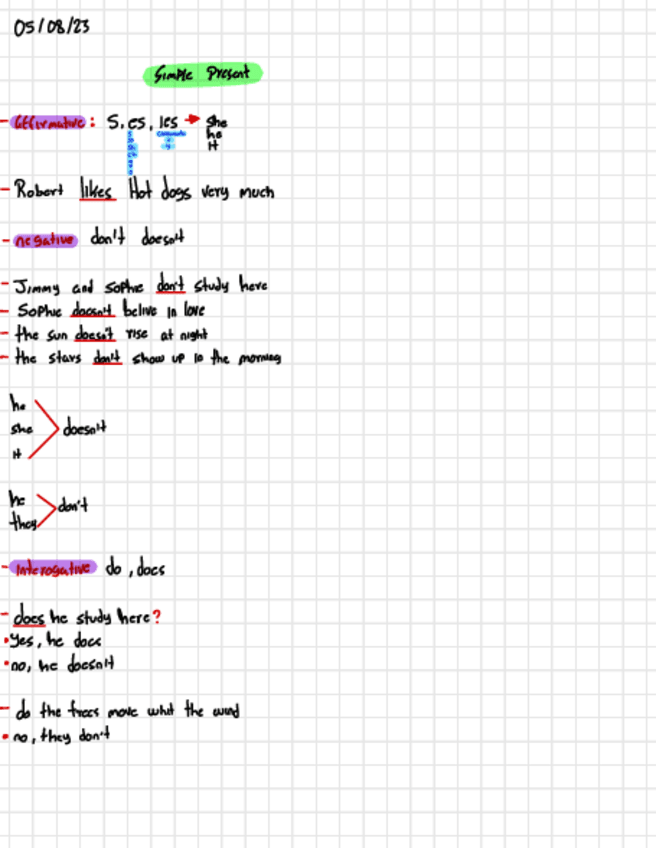 05/08/23
Simple Present
- affirmative: s, es, ies → she
he
it
- Robert likes Hot dogs very much
- negative don't doesn't
- Jimmy and Sophie don't study here
- Sophie doesn't belive in love
- the sun doesn't rise at night
- the stars don't show up in the morning
he
she
it
doesn't
he
they
don't
- interogative do, does
- does he study here?
• Yes, he does
• no, he doesn't
- do the trees move whit the wind
• no, they don't